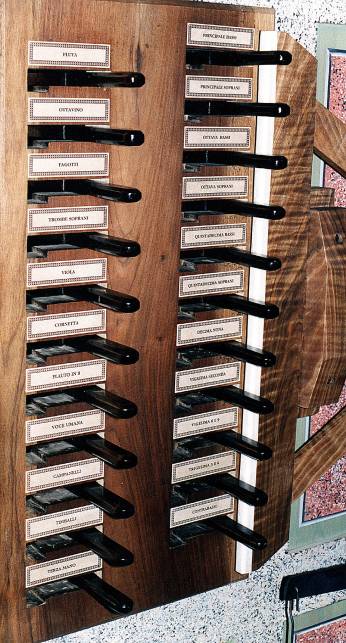 FLUTA
OTTAVINO
FAGOTTI
TROMBE SOPRANI
VIOLA
CORNETTA
FLAUTO IN 8
VOCE UMANA
CAMPANELLI
TIMBALLI
TERZA MANO
PRINCIPALE BASSI
PRINCIPALE SOPRANI
OTTAVA BASSI
OTTAVA SOPRANI
QUINTADECIMA BASSI
QUINTADECIMA SOPRANI
DECIMA NONA
VIGESIMA SECONDA
VIGESIMA 6 E 9
TRIGESIMA 3 E 6
CONTRABASSI